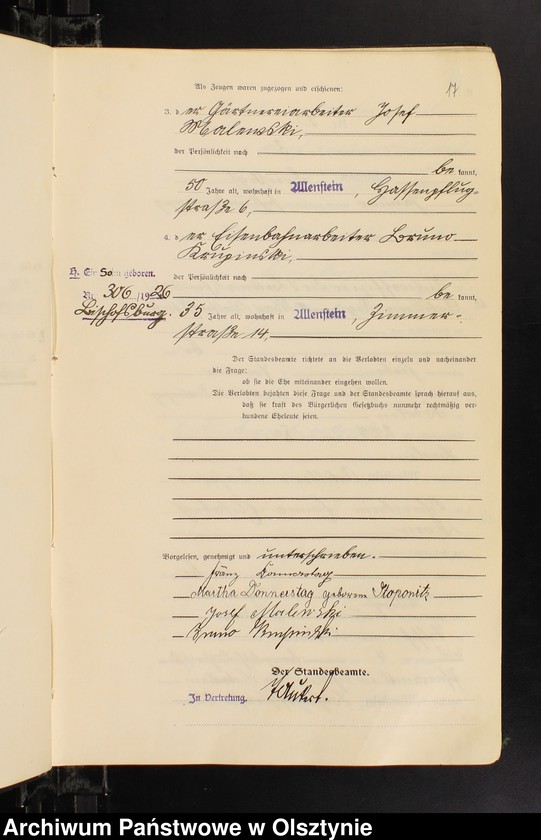 17
Als Zeugen waren zugezogen und erschienen:
3. der Gärtnereiarbeiter Josef
Malewski,
der Persönlichkeit nach
be kannt,
50 Jahre alt, wohnhaft in Allenstein, Hassenpflug-
straße 6,
4. der Eisenbahnarbeiter Bruno
Krupinski,
der Persönlichkeit nach
be kannt,
35 Jahre alt, wohnhaft in Allenstein, Zimmer-
straße 14.
H. Ein Sohn geboren.
Nr. 306/1926
Bischofsburg.
Der Standesbeamte richtete an die Verlobten einzeln und nacheinander
die Frage:
ob sie die Ehe miteinander eingehen wollen.
Die Verlobten bejahten diese Frage und der Standesbeamte sprach hierauf aus,
daß sie kraft des Bürgerlichen Gesetzbuchs nunmehr rechtmäßig ver-
bundene Eheleute seien.
Vorgelesen, genehmigt und unterschrieben.
Franz Donnerstag
Martha Donnerstag geborene Stoponitz
Josef Malewski
Bruno Krupinski
Der Standesbeamte.
In Vertretung.
Archiwum Państwowe w Olsztynie